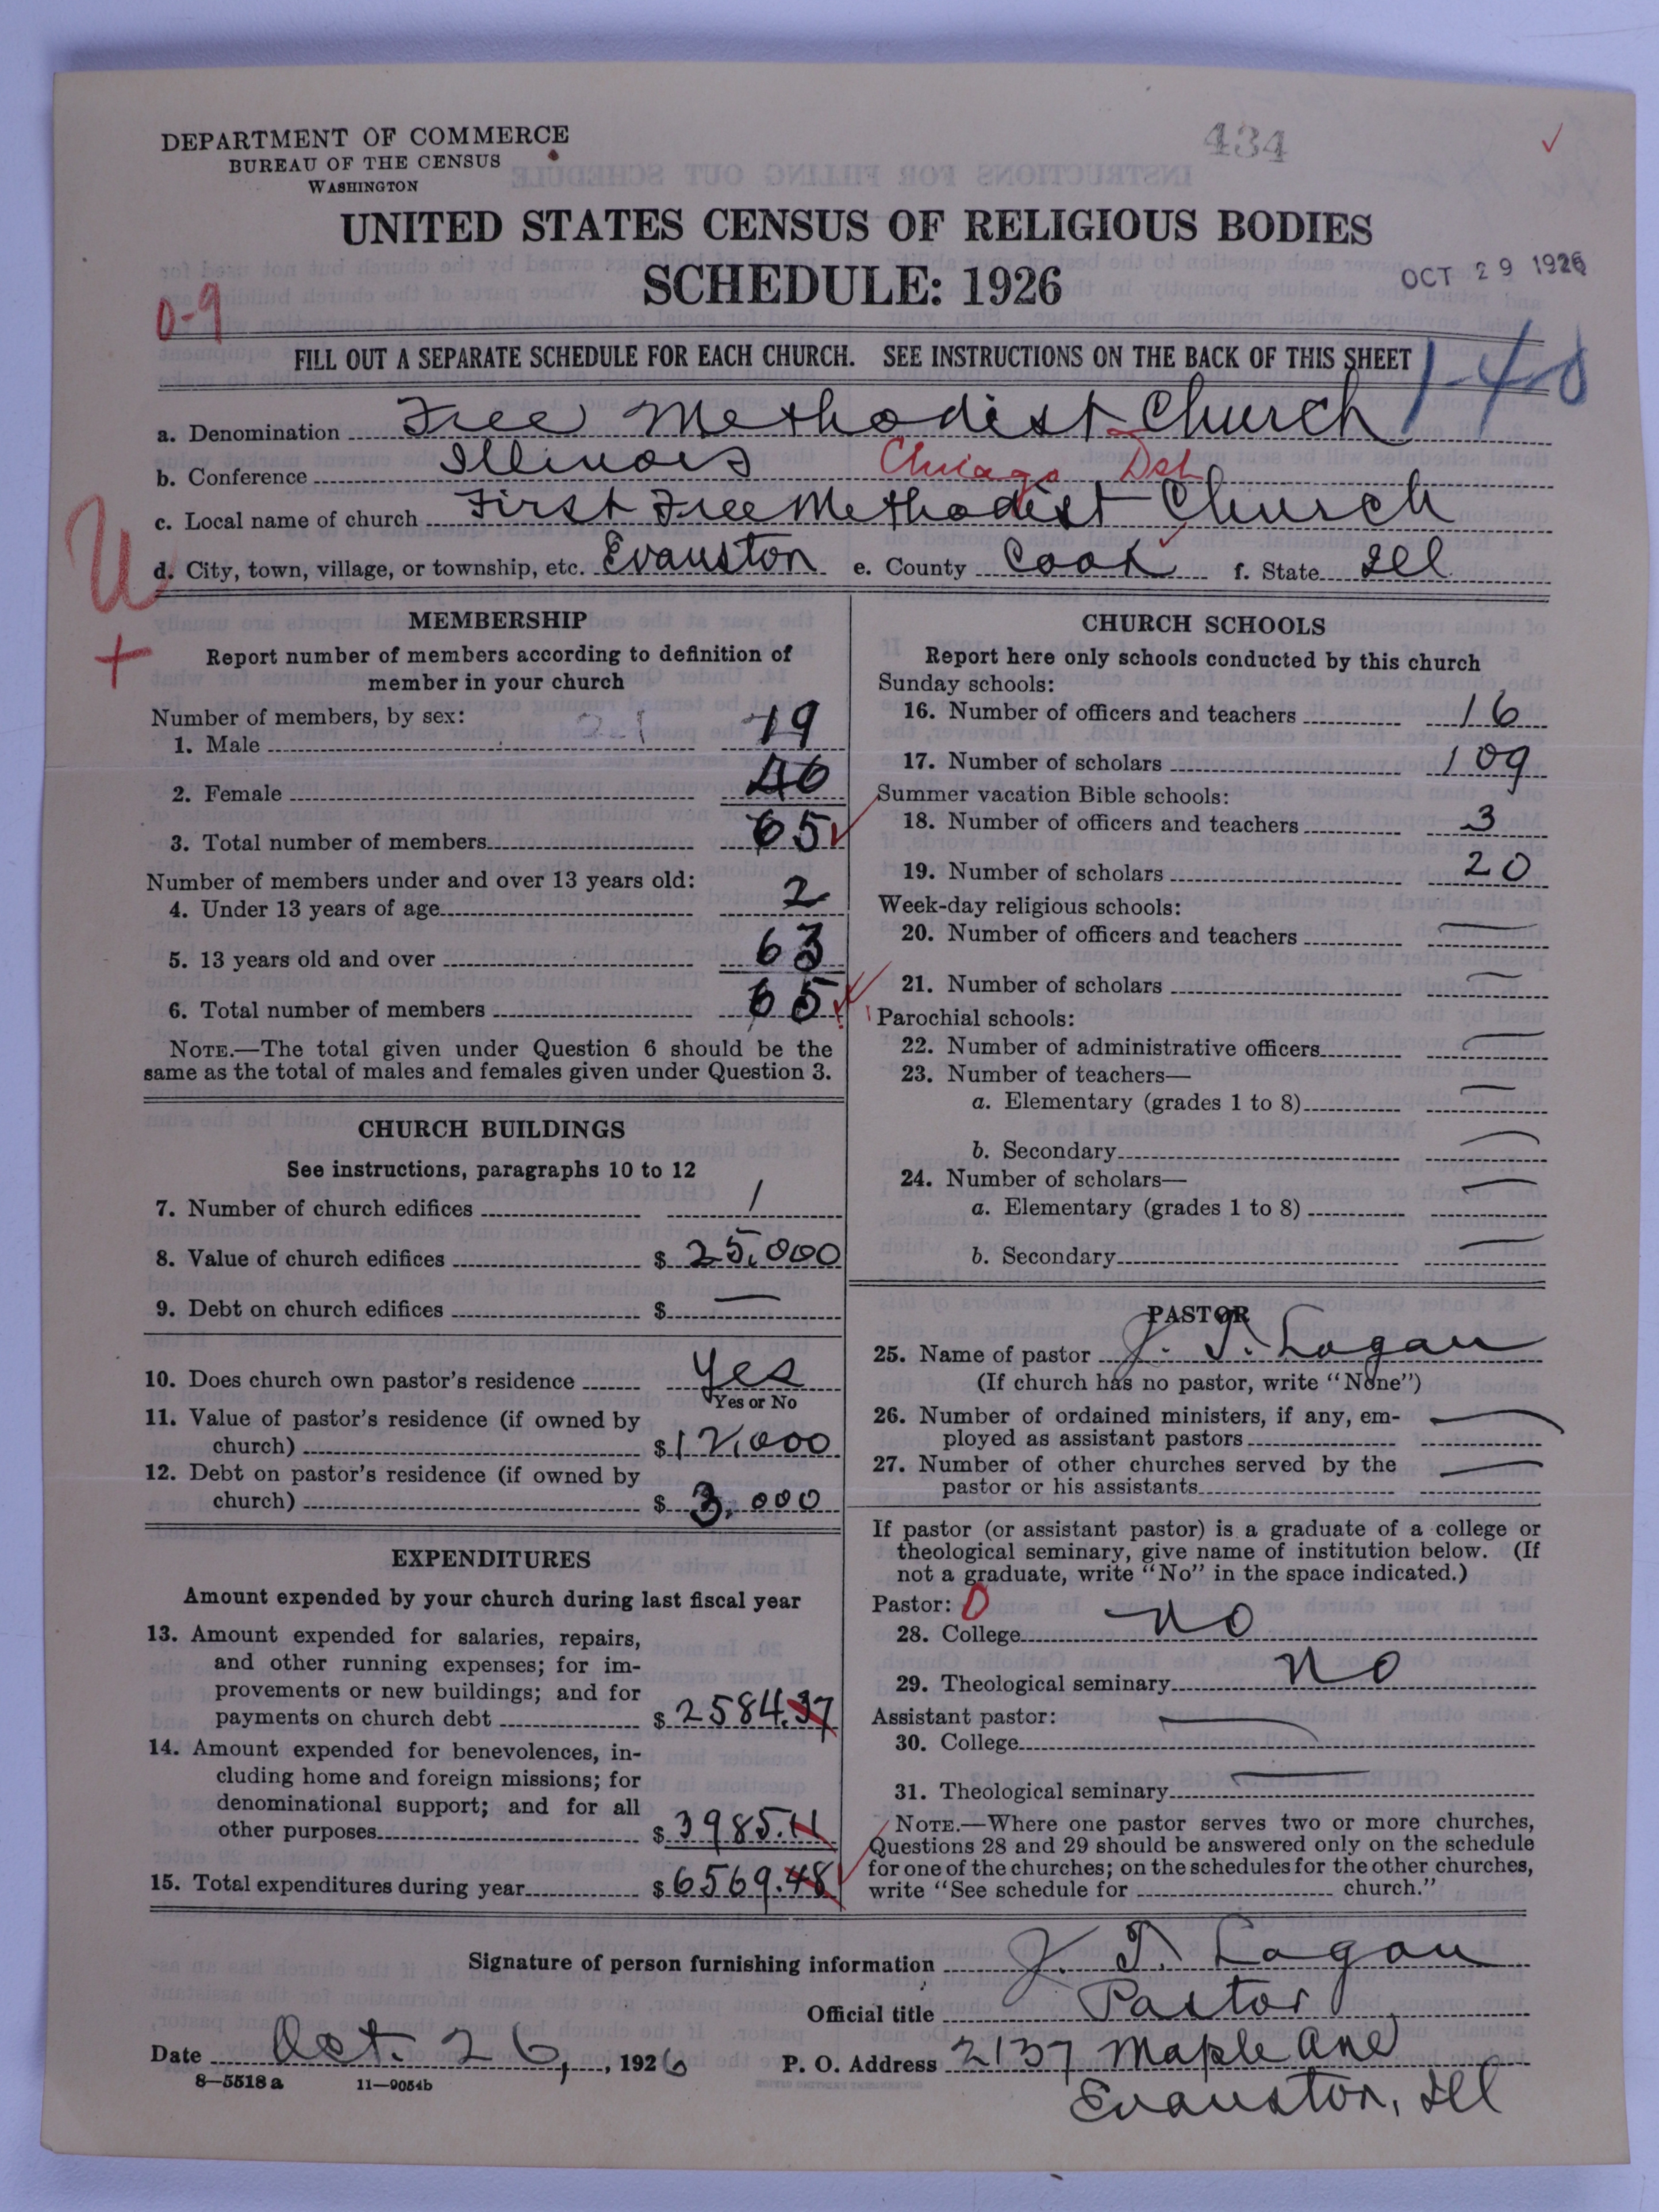 DEPARTMENT OF COMMERCE
BUREAU OF THE CENSUS
WASHINGTON
434
UNITED STATES CENSUS OF RELIGIOUS BODIES
SCHEDULE: 1926
OCT 29 1926
0-9
FILL OUT A SEPARATE SCHEDULE FOR EACH CHURCH. SEE INSTRUCTIONS ON THE BACK OF THIS SHEET
1-40
a. Denomination Free Methodist Church
b. Conference Illinois Chicago Dst
c. Local name of church First Free Methodist Church
d. City, town, village, or township, etc. Evanston e. County Cook f. State Ill
U
+
MEMBERSHIP
Report number of members according to definition of
member in your church
Number of members, by sex:
1. Male 21 19
2. Female 46
3. Total number of members 65
Number of members under and over 13 years old:
4. Under 13 years of age 2
5. 13 years old and over 63
6. Total number of members 65
NOTE.—The total given under Question 6 should be the
same as the total of males and females given under Question 3.
CHURCH BUILDINGS
See instructions, paragraphs 10 to 12
7. Number of church edifices 1
8. Value of church edifices $ 25,000
9. Debt on church edifices $ —
10. Does church own pastor's residence Yes
Yes or No
11. Value of pastor's residence (if owned by
church) $ 12,000
12. Debt on pastor's residence (if owned by
church) $ 3,000
EXPENDITURES
Amount expended by your church during last fiscal year
13. Amount expended for salaries, repairs,
and other running expenses; for im-
provements or new buildings; and for
payments on church debt $ 2584.37
14. Amount expended for benevolences, in-
cluding home and foreign missions; for
denominational support; and for all
other purposes $ 3985.11
15. Total expenditures during year $ 6569.48
CHURCH SCHOOLS
Report here only schools conducted by this church
Sunday schools:
16. Number of officers and teachers 16
17. Number of scholars 109
Summer vacation Bible schools:
18. Number of officers and teachers 3
19. Number of scholars 20
Week-day religious schools:
20. Number of officers and teachers —
21. Number of scholars —
Parochial schools:
22. Number of administrative officers —
23. Number of teachers—
a. Elementary (grades 1 to 8) —
b. Secondary —
24. Number of scholars—
a. Elementary (grades 1 to 8) —
b. Secondary —
PASTOR
25. Name of pastor J. T. Logan
(If church has no pastor, write "None")
26. Number of ordained ministers, if any, em-
ployed as assistant pastors —
27. Number of other churches served by the
pastor or his assistants —
If pastor (or assistant pastor) is a graduate of a college or
theological seminary, give name of institution below. (If
not a graduate, write "No" in the space indicated.)
Pastor: 0
28. College no
29. Theological seminary no
Assistant pastor:
30. College —
31. Theological seminary —
NOTE.—Where one pastor serves two or more churches,
Questions 28 and 29 should be answered only on the schedule
for one of the churches; on the schedules for the other churches,
write "See schedule for church."
Signature of person furnishing information J. T. Logan
Official title Pastor
Date Oct. 26, 1926 P. O. Address 2137 Maple Ave
8—5518 a 11—9054b
Evanston, Ill